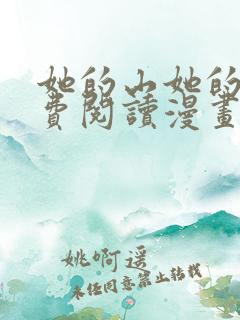 她的山她的
費閱讀漫畫
姚啊遥
未经同意禁止转载